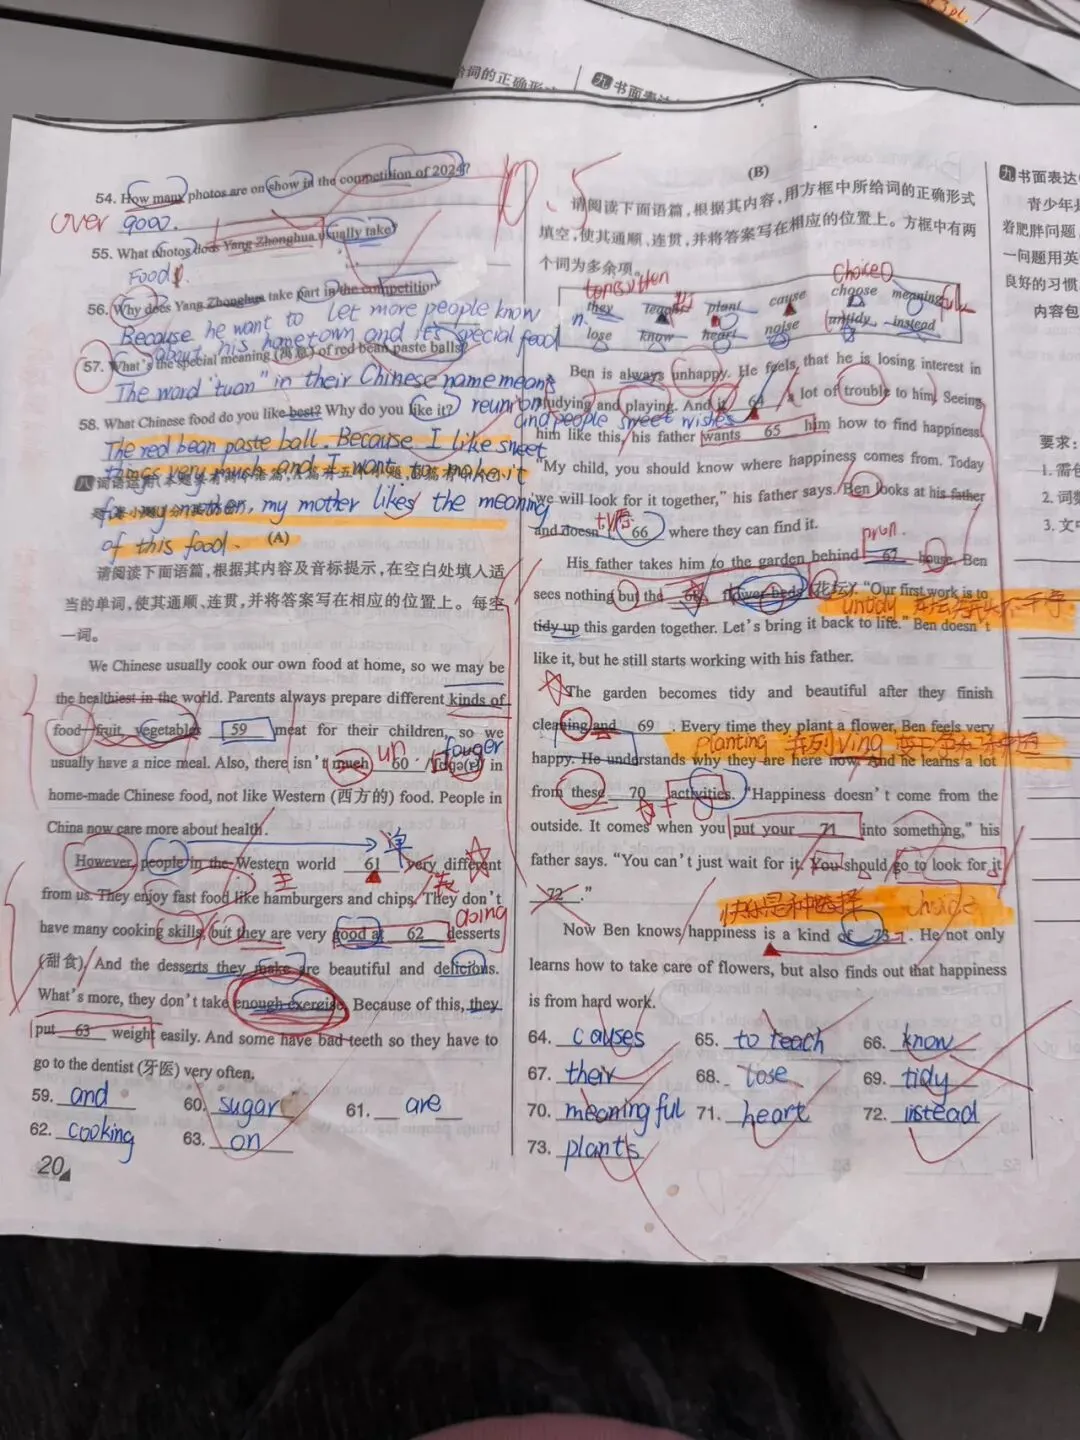 给词的正确形
九 书面表达
54. How many photos are on show in the competition of 2024?
over 9000.
55. What photos does Yang Zhonghua usually take?
Food
56. Why does Yang Zhonghua take part in the competition
Because he want to let more people know
about his hometown and it's special food
57. What's the special meaning (寓意) of red bean paste balls?
The word "tuan" in their Chinese name means
reunion
and people sweet wishes
58. What Chinese food do you like best? Why do you like it?
The red bean paste ball. Because I like sweet
things very much and I want to make it
for my mother, my mother likes the meaning
of this food.
八 词语运用
(A)
请阅读下面语篇,根据其内容及音标提示,在空白处填入适
当的单词,使其通顺、连贯,并将答案写在相应的位置上。每空
一词。
We Chinese usually cook our own food at home, so we may be
the healthiest in the world. Parents always prepare different kinds of
food—fruit, vegetables 59 meat for their children, so we
usually have a nice meal. Also, there isn't much 60 /ˈʃʊɡə(r)/ in
home-made Chinese food, not like Western (西方的) food. People in
China now care more about health.
However, people in the Western world 61 very different
from us. They enjoy fast food like hamburgers and chips. They don't
have many cooking skills, but they are very good at 62 desserts
(甜食). And the desserts they make are beautiful and delicious.
What's more, they don't take enough exercise. Because of this, they
put 63 weight easily. And some have bad teeth so they have to
go to the dentist (牙医) very often.
59. and 60. sugar 61. are
62. cooking 63. on
20
un
单
主
doing
10.5
(B)
请阅读下面语篇,根据其内容,用方框中所给词的正确形式
填空,使其通顺、连贯,并将答案写在相应的位置上。方框中有两
个词为多余项。
they teach plant cause choose meaning
lose know heart noise untidy instead
choice
ful
n.
Ben is always unhappy. He feels that he is losing interest in
studying and playing. And it 64 a lot of trouble to him. Seeing
him like this, his father wants 65 him how to find happiness.
"My child, you should know where happiness comes from. Today
we will look for it together," his father says. Ben looks at his father
and doesn't 66 where they can find it.
pron.
His father takes him to the garden behind 67 house. Ben
sees nothing but the 68 flower beds (花坛). "Our first work is to
untidy
tidy up this garden together. Let's bring it back to life." Ben doesn't
like it, but he still starts working with his father.
The garden becomes tidy and beautiful after they finish
cleaning and 69 . Every time they plant a flower, Ben feels very
planting 并列 ving
happy. He understands why they are here now. And he learns a lot
from these 70 activities. "Happiness doesn't come from the
outside. It comes when you put your 71 into something," his
father says. "You can't just wait for it. You should go to look for it
72 ."
快乐是一种选择 choice
Now Ben knows happiness is a kind of 73 . He not only
learns how to take care of flowers, but also finds out that happiness
is from hard work.
64. causes 65. to teach 66. know
67. their 68. lose 69. tidy
70. meaningful 71. heart 72. instead
73. plants
九 书面表达
青少年是
着肥胖问题
一问题用英
良好的习惯
内容包
要求:
1. 需包
2. 词数
3. 文中